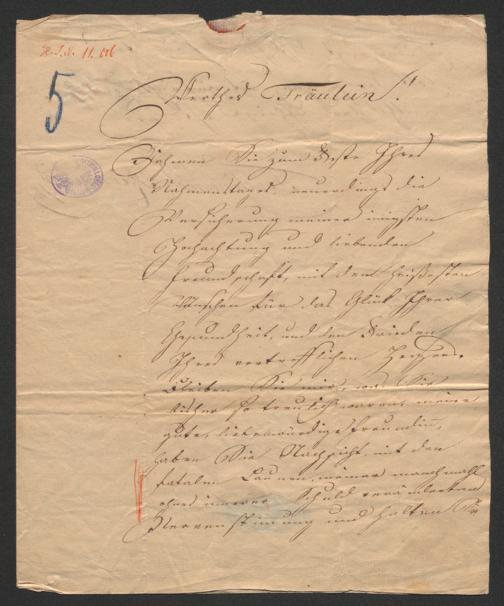 H. I. N. 11.606
5
Werthes Fräulein!
Nehmen Sie zum Feste Ihres
Nahmenstages, neuerdings die
Versicherung meiner innigsten
Hochachtung und liebenden
Freundschaft, mit den heißesten
Wünschen für das Glück Ihrer
Gesundheit, und den Frieden
Ihres vortrefflichen Herzens.
Bleiben Sie mir, was Sie
bisher so treulich waren, meine
gute, liebenswürdige Freundin,
haben Sie Nachsicht mit den
fatalen Launen, meiner manchmahl
ohne innerer Schuld
Nervenstimmung und halten Sie